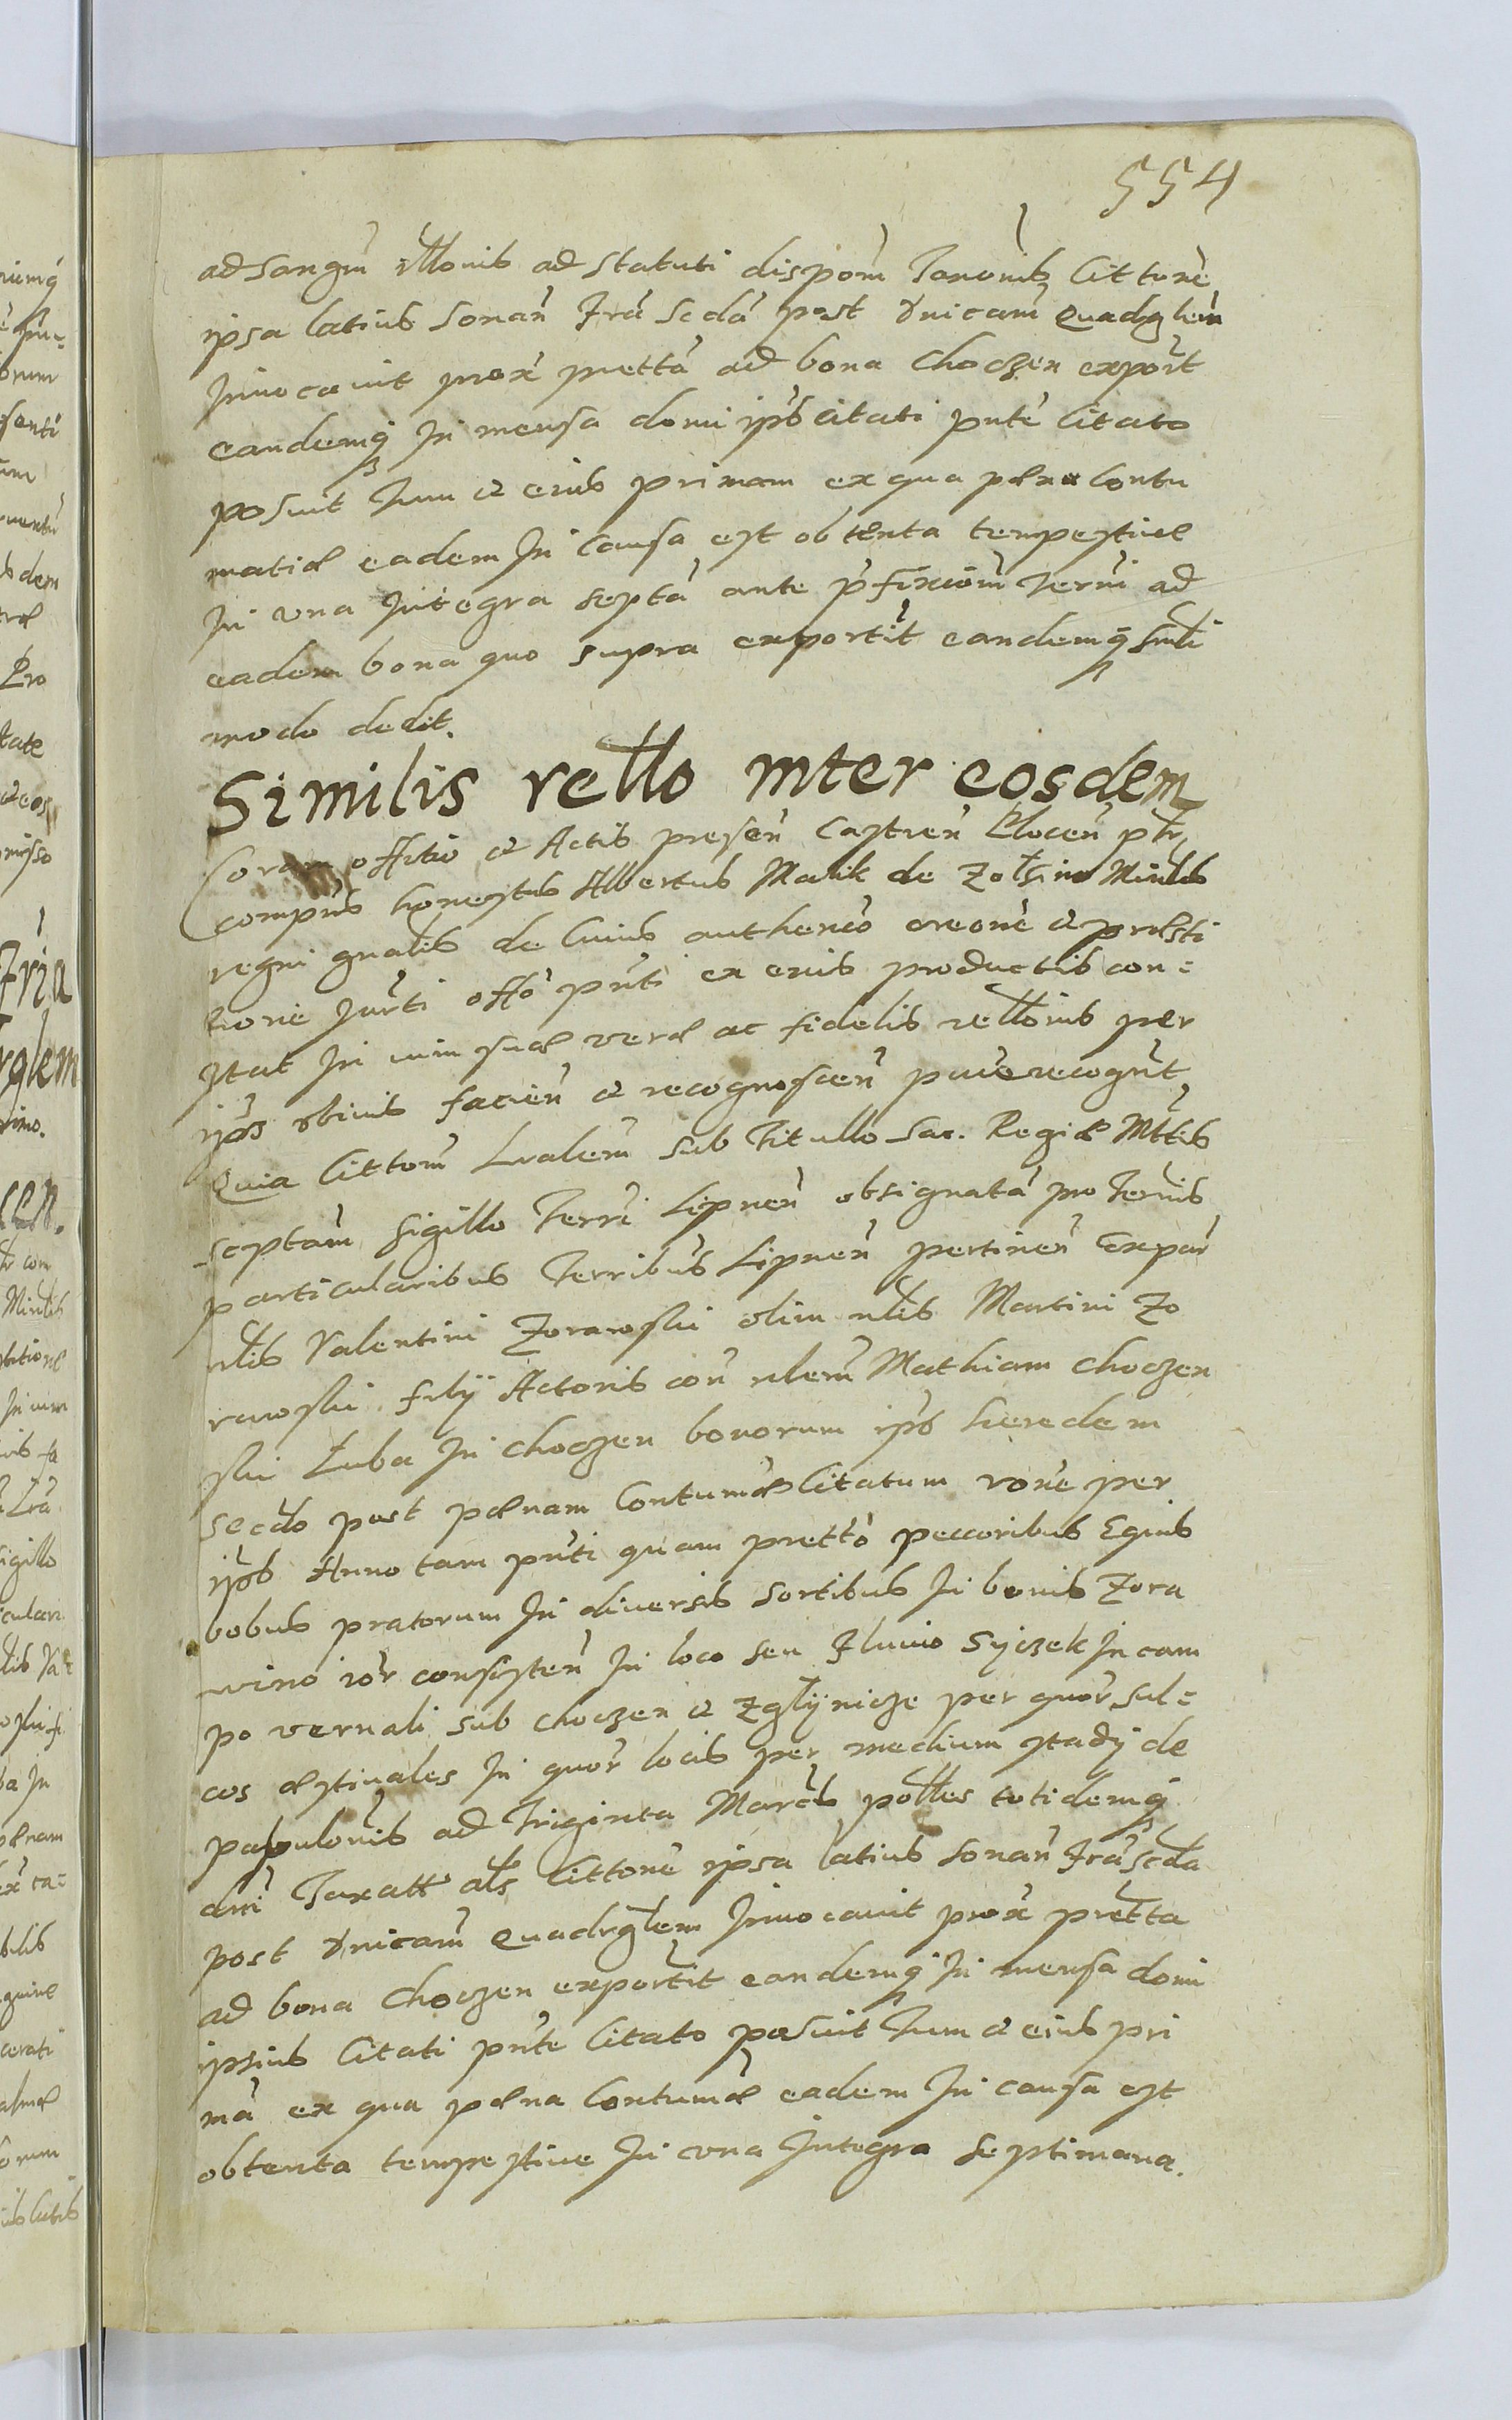 554
ad sangm illonis ad statuti dispom Tanonis Cittone
ipsa latius sonan Fra scda post Unicam Quadrglem
Invocavit prox pretta ad bona Choczen export
eandemq In mensa domi ipsius citati pnte Citato
posuit Tum et eius primam ex qua pœna Contu
matiæ eadem In Causa est obtenta tempestive
In una Integra septa ante pfixciom Termi ad
eadem bona quo supra exportit eandemq simli
modo dedit.
Similis retlo inter eosdem
Coram offitio et Actis presen Castren Plocen ptr
compns honestus Albertus Malik de Zolsino Ministis
regni gnalis de Cuius authenco creone et præsti
tione Jurti offo pnti ex eius productis con=
stat In vim suæ veræ ac fidelis retlonis per
ipm obivis facien et recognoscen pave recognt
Quia Cittom Lralem sub Titullo Sac. Regiæ Mttis
scptam sigillo Terri Lipnen obsignata pro Termis
particularibus Terribus Lipnen pertinen Expar
nlis Valentini Zorawski olim nlis Martini Zo
rawski filij Actoris con nlem Mathiam Choczen
ski Luba In Choczen bonorum ips heredem
secdo post pœnam Contumæ Citatum rone per
ipsos Anno tam pnti quam pretto peccoribus Equis
bobus pratorum In diversis sortibus In bonis Zora
wino ior consisten In loco seu Fluvio Syczek In cam
po vernali sub Choczen et Zglijnicze per quor sul=
cos æstivales In quor locis per medium stadij de
papulonis ad Triginta Marcs polles totidemq
dni Taxatt als Cittone ipsa latius sonan Fra scda
post Unicam Quadrglem Invocavit prox pretta
ad bona Choczen exportit eandemq In mensa domi
ipsius Citati pnte Citato posuit Tum et eius pri
ma ex qua pœna Contumæ eadem In causa est
obtenta tempestive In una Integra septimana.